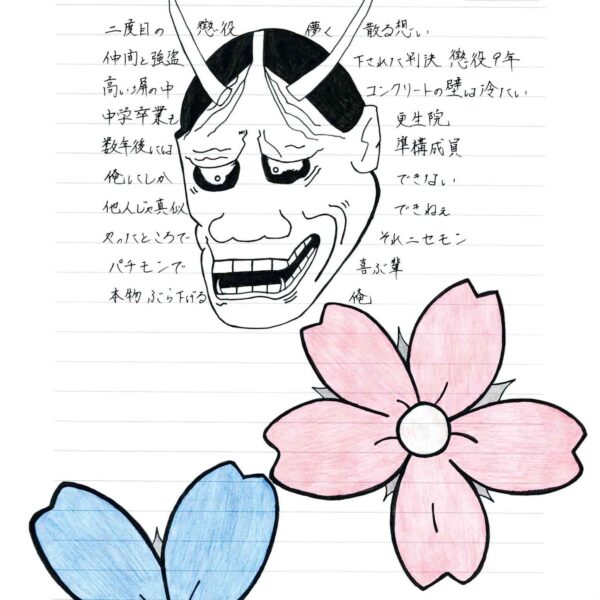 二度目の 懲役 儚く 散る想い
仲間と強盗 下された判決 懲役9年
高い塀の中 コンクリートの壁は冷たい
中学卒業も 更生院
数年後には 準構成員
俺にしか できない
他人じゃ真似 できねぇ
やったところで それニセモン
パチモンで 喜ぶ輩
本物ぶら下げる 俺